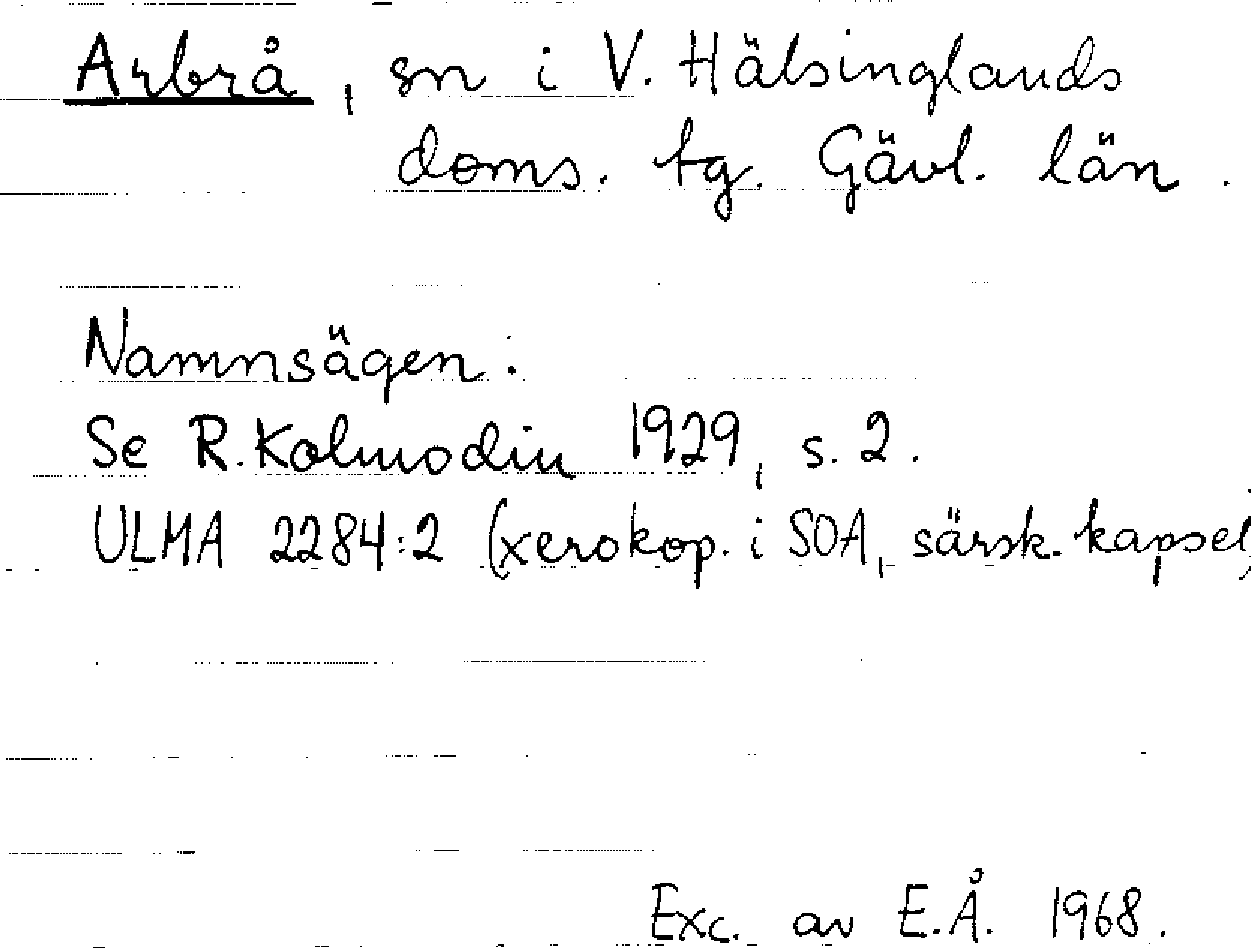 Arbrå, sn i V. Hälsinglands
doms. tg. Gävl. län.
Namnsägen:
Se R. Kolmodin 1929, s. 2.
ULMA 2284:2 (xerokop. i SOA, särsk. kapsel)
Exc. av E.Å. 1968.